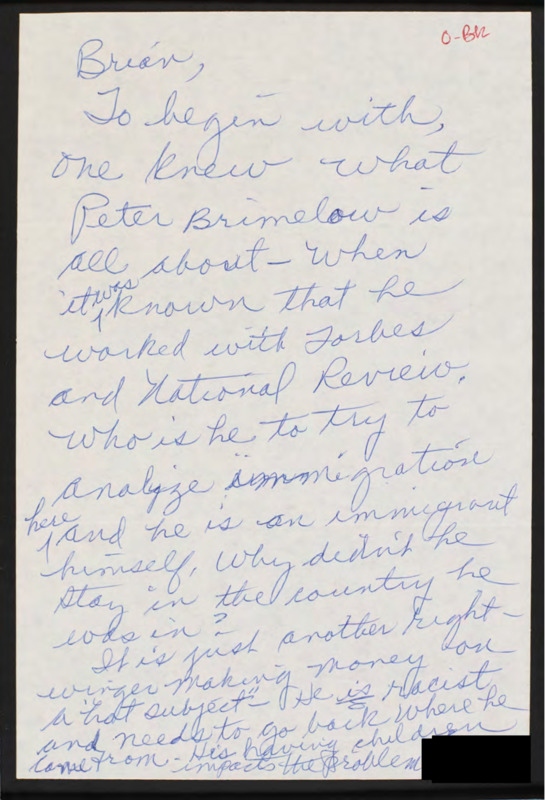 O-BK
Brian,
To begin with,
one knew what
Peter Brimelow is
all about - When
it was known that he
worked with Forbes
and National Review.
Who is he to try to
analyze immigration
here and he is an immigrant
himself, Why didn't he
stay in the country he
was in?
It is just another right-
winger making money on
a "hot subject" - He is racist
and needs to go back where he
came from - His having children
impacts the problem